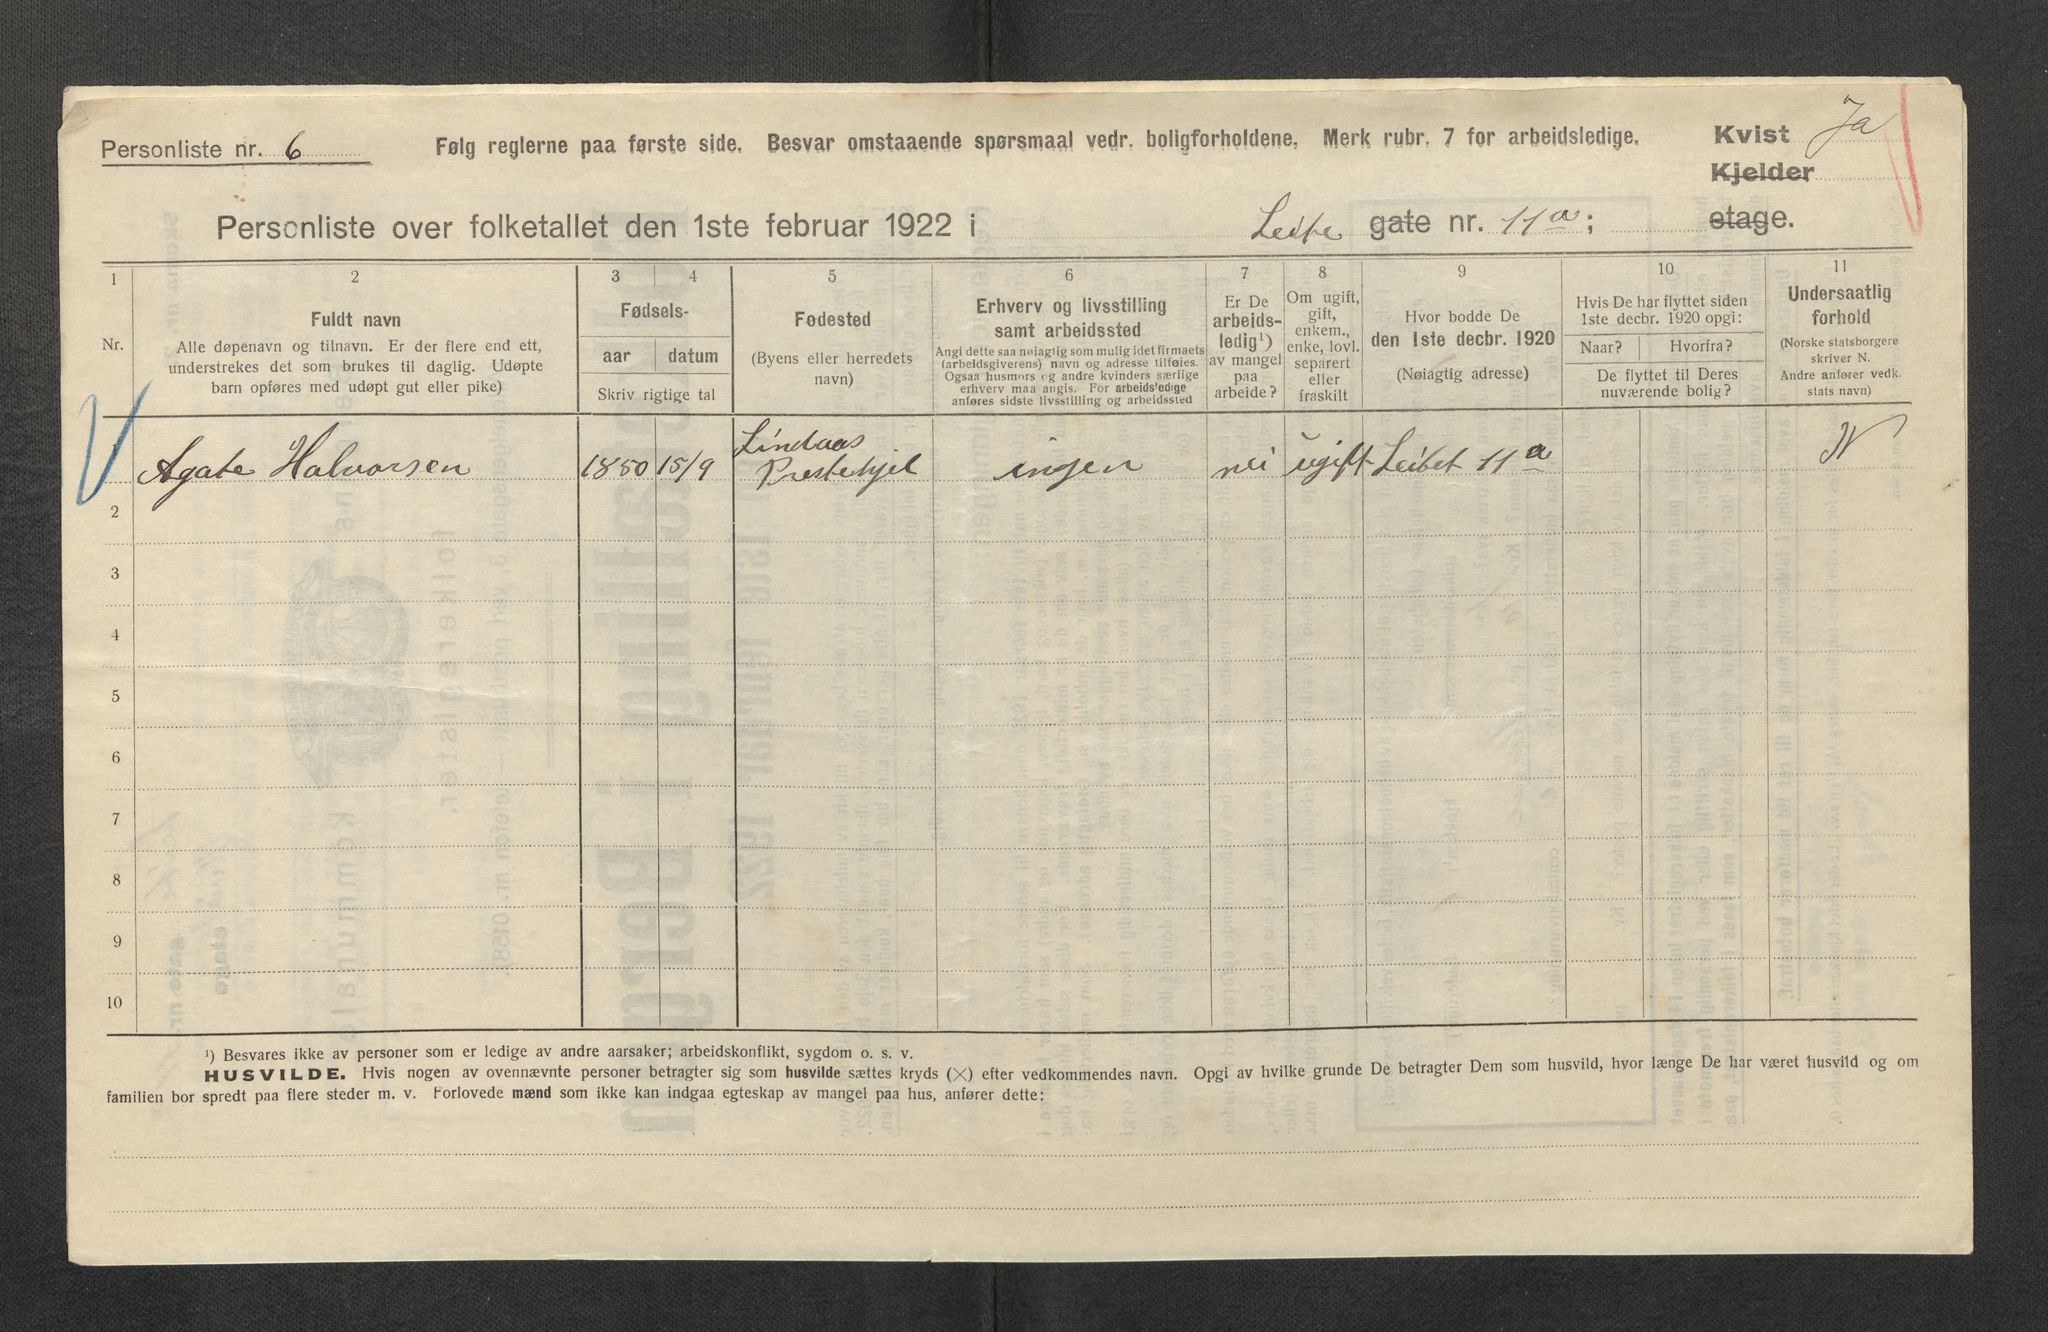 Personliste nr. 6
Følg reglerne paa første side. Besvar omstaaende spørsmaal vedr. boligforholdene. Merk rubr. 7 for arbeidsledige.
Kvist Ja
Kjelder
Personliste over folketallet den 1ste februar 1922 i gate nr. 11a; etage.
1 2 3 4 5 6 7 8 9 10 11
Nr.
Fuldt navn
Alle døpenavn og tilnavn. Er der flere end ett,
understrekes det som brukes til daglig. Udøpte
barn opføres med udøpt gut eller pike)
Fødsels-
aar datum
Skriv rigtige tal
Fødested
(Byens eller herredets
navn)
Erhverv og livsstilling
samt arbeidssted
Angi dette saa nøiagtig som mulig idet firmaets
(arbeidsgiverens) navn og adresse tilføies.
Ogsaa husmors og andre kvinders særlige
erhverv maa angis. For arbeidsledige
anføres sidste livsstilling og arbeidssted
Er De
arbeids-
ledig¹)
av mangel
paa
arbeide?
Om ugift,
gift,
enkem.,
enke, lovl.
separert
eller
fraskilt
Hvor bodde De
den 1ste decbr. 1920
(Nøiagtig adresse)
Hvis De har flyttet siden
1ste decbr. 1920 opgi:
Naar? Hvorfra?
De flyttet til Deres
nuværende bolig?
Undersaatlig
forhold
(Norske statsborgere
skriver N.
Andre anfører vedk.
stats navn)
1 Agate Halvorsen 1850 15/9 Lindaas
Prestehjel ingen nei ugift Leitet 11a N
2
3
4
5
6
7
8
9
10
¹) Besvares ikke av personer som er ledige av andre aarsaker; arbeidskonflikt, sygdom o. s. v.
HUSVILDE. Hvis nogen av ovennævnte personer betragter sig som husvilde sættes kryds (×) efter vedkommendes navn. Opgi av hvilke grunde De betragter Dem som husvild, hvor længe De har været husvild og om
familien bor spredt paa flere steder m. v. Forlovede mænd som ikke kan indgaa egteskap av mangel paa hus, anfører dette: